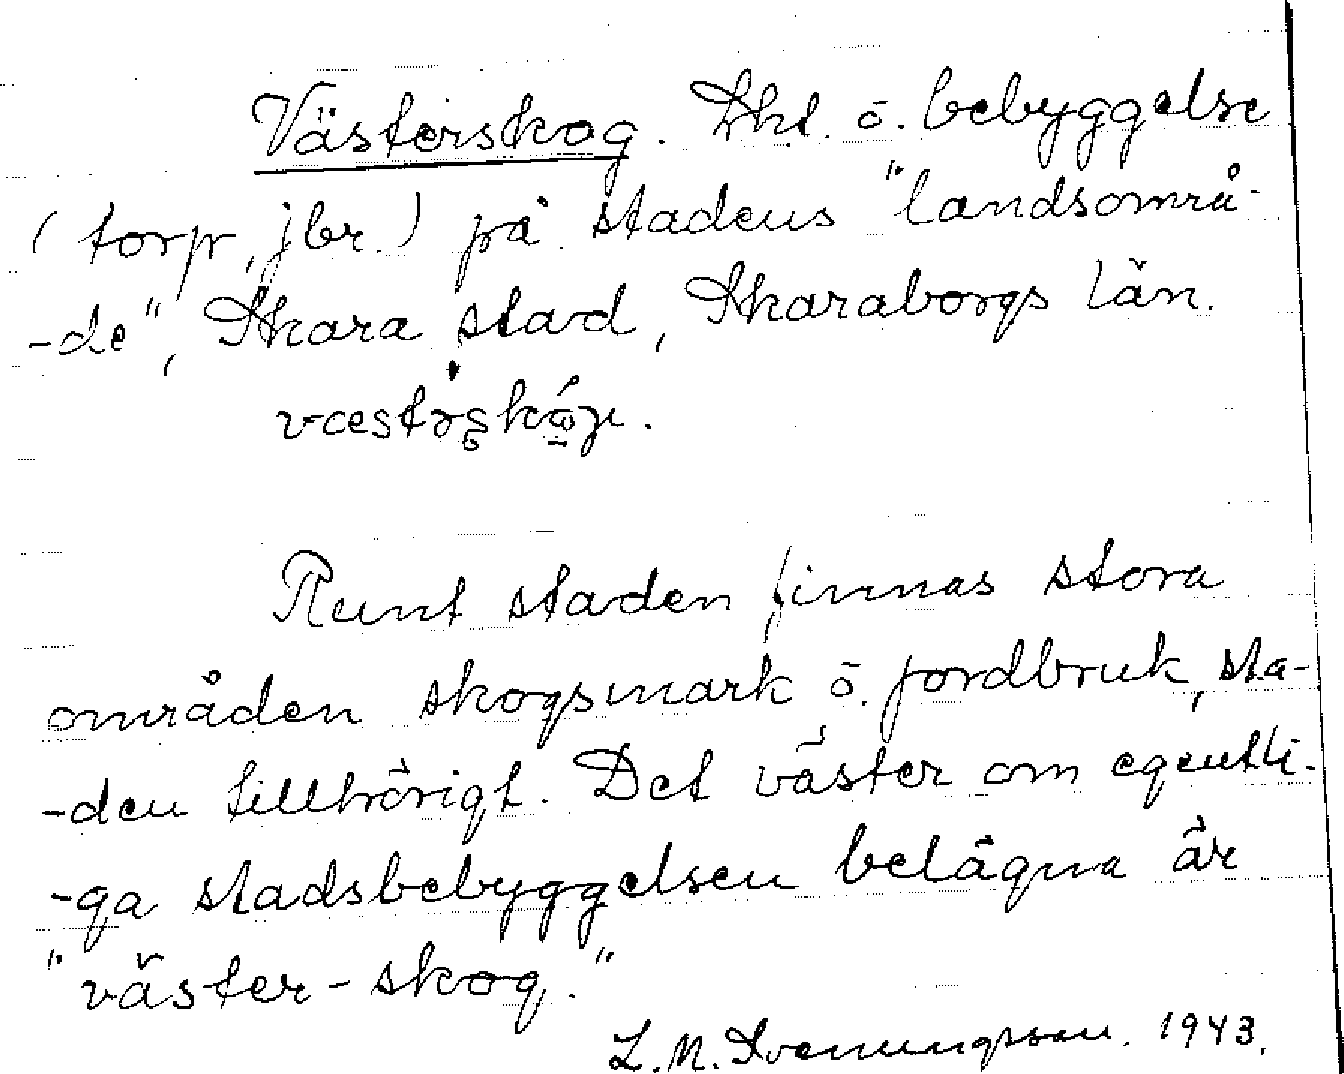 Västerskog. Skt. ö. bebyggelse
(torp, jbr.) på stadens "landsområ-
-de", Skara stad, Skaraborgs län.
Runt staden finnas stora
områden skogsmark ö. jordbruk, sta-
-den tillhörigt. Det väster om egentli-
-ga stadsbebyggelsen belägna är
"väster-skog."
L.M. Svenungsson. 1943.